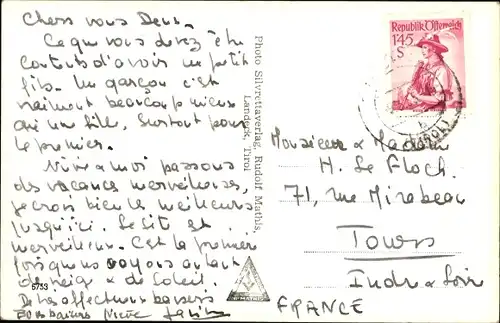 Chers vous Deux.
Ce que vous devez être
contents d'avoir un petit
fils. Un garçon c'est
vraiment beaucoup mieux
qu'une fille, surtout pour
le premier.
Vivie & moi passons
des vacances merveilleuses,
je crois bien les meilleures
jusqu'ici. Le site est
merveilleux. C'est la première
fois que nous voyons autant
de neige & de Soleil.
Bons baisers
5753
Photo Silvrettaverlag, Rudolf Mathis,
Landeck, Tirol
Republik Österreich
1'45
S
(TIROL)
Monsieur & Madame
H. Le Floch.
71, rue Mirabeau
Tours
Indre & Loire
FRANCE